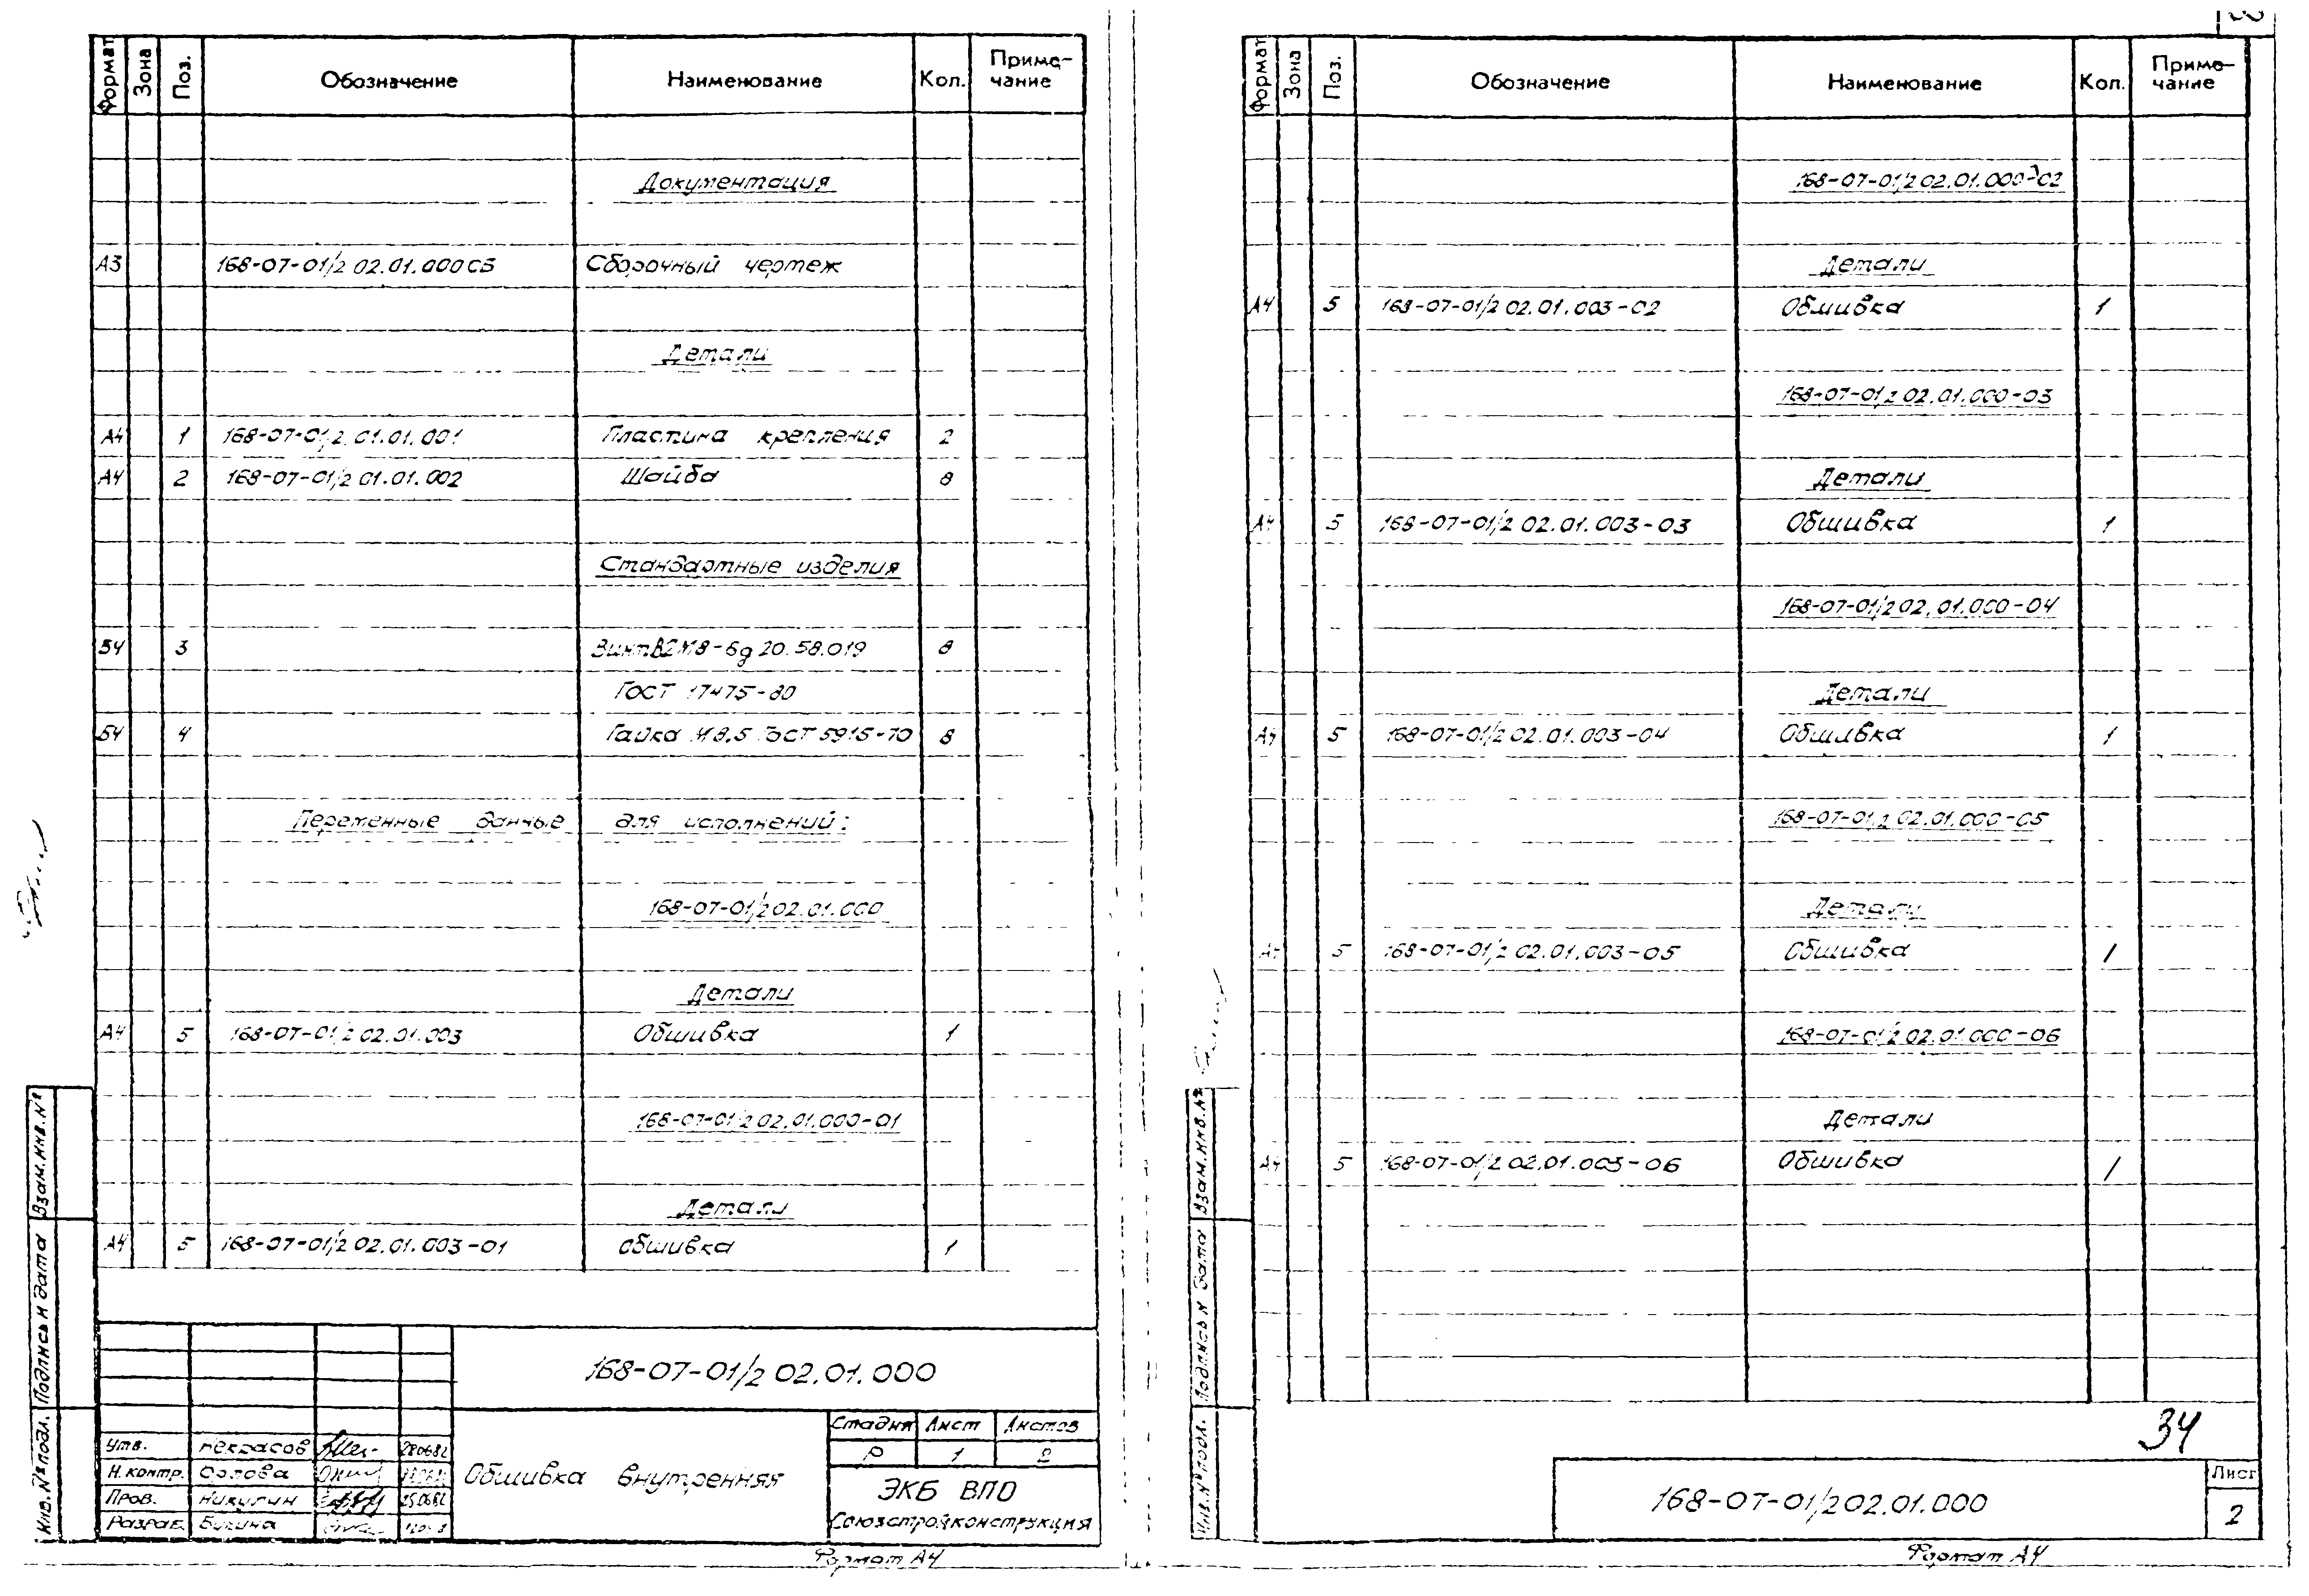 Формат Зона Поз. Обозначение Наименование Кол. Приме-
чание
Документация
А3 168-07-01/2 02.01.000СБ Сборочный чертеж
Детали
А4 1 168-07-01/2 01.01.001 Пластина крепления 2
А4 2 168-07-01/2 01.01.002 Шайба 8
Стандартные изделия
БЧ 3 Винт В2М8-6g 20.58.019 8
ГОСТ 17475-80
БЧ 4 Гайка М8.5 ГОСТ 5915-70 8
Переменные данные для исполнений:
168-07-01/2 02.01.000
Детали
А4 5 168-07-01/2 02.01.003 Обшивка 1
168-07-01/2 02.01.000-01
Детали
А4 5 168-07-01/2 02.01.003-01 Обшивка 1
Взам.инв.№
Подпись и дата
Инв.№подл.
168-07-01/2 02.01.000
Утв. Некрасов 280682
Н.контр. Орлова
Пров. Никулин 250682
Разраб.
Обшивка внутренняя
Стадия Лист Листов
Р 1 2
ЭКБ ВПО
Союзстройконструкция
Формат А4
Формат Зона Поз. Обозначение Наименование Кол. Приме-
чание
168-07-01/2 02.01.000-02
Детали
А4 5 168-07-01/2 02.01.003-02 Обшивка 1
168-07-01/2 02.01.000-03
Детали
А4 5 168-07-01/2 02.01.003-03 Обшивка 1
168-07-01/2 02.01.000-04
Детали
А4 5 168-07-01/2 02.01.003-04 Обшивка 1
168-07-01/2 02.01.000-05
Детали
А4 5 168-07-01/2 02.01.003-05 Обшивка 1
168-07-01/2 02.01.000-06
Детали
А4 5 168-07-01/2 02.01.003-06 Обшивка 1
Взам.инв.№
Подпись и дата
Инв.№подл.
34
168-07-01/2 02.01.000
Лист
2
Формат А4